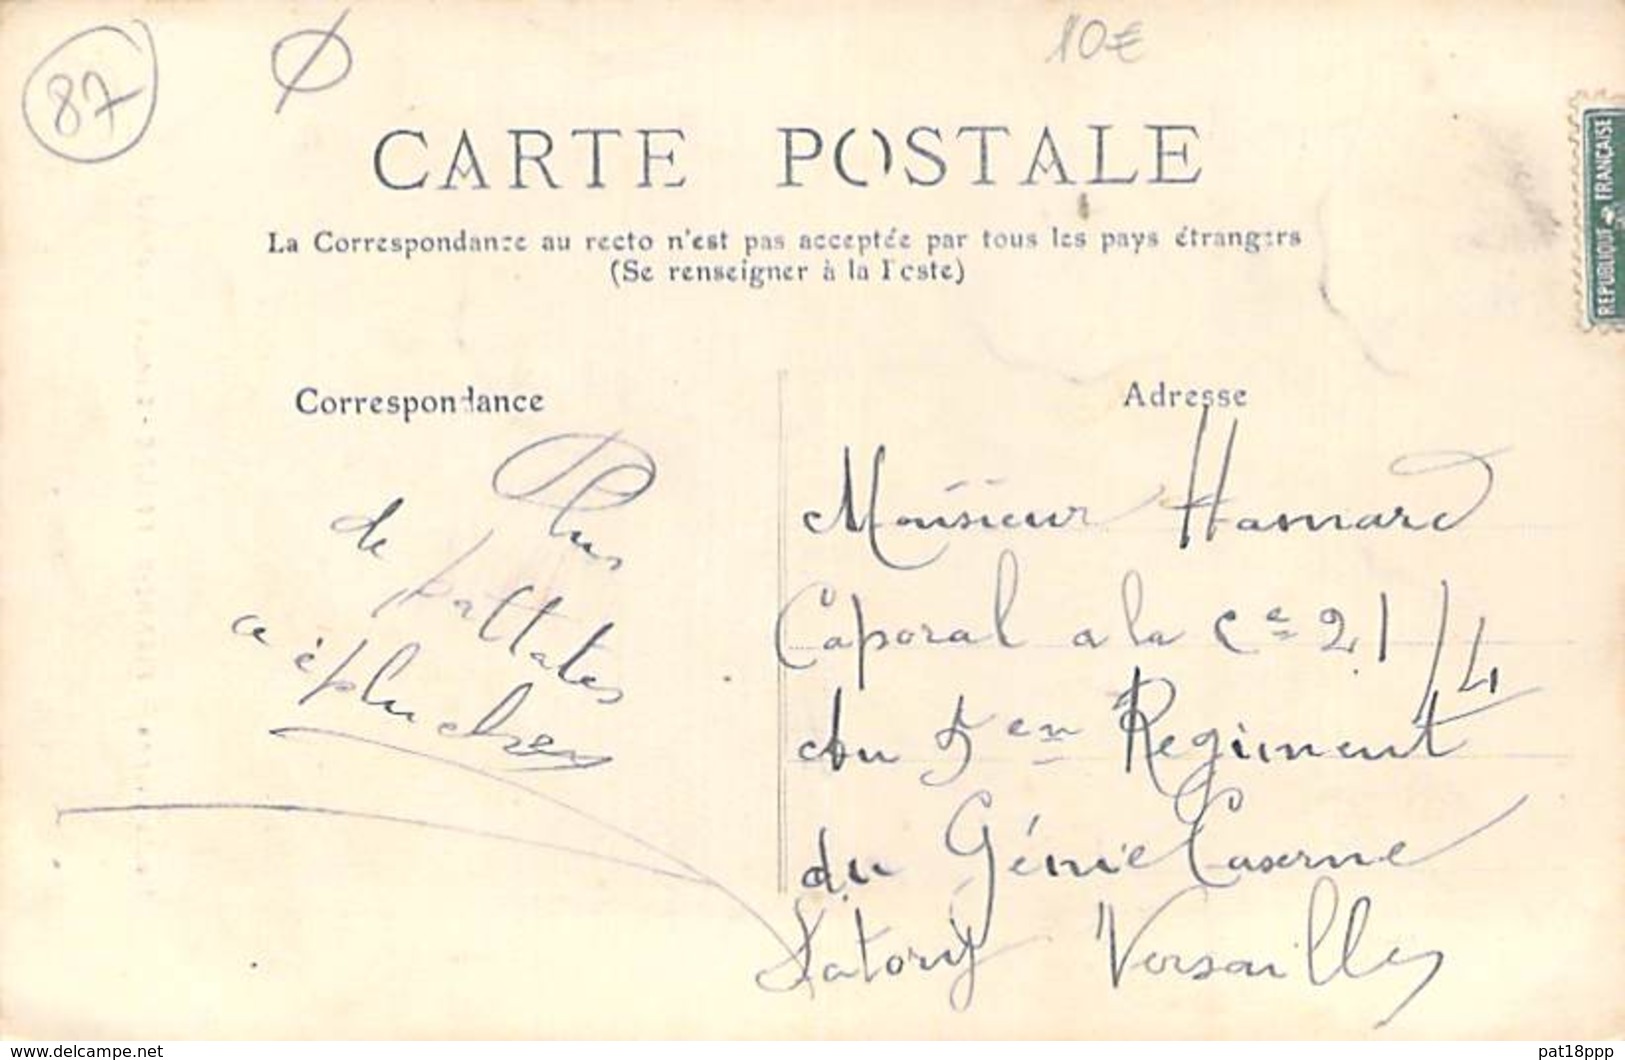 87
10€
CARTE POSTALE
La Correspondance au recto n'est pas acceptée par tous les pays étrangers
(Se renseigner à la Poste)
REPUBLIQUE FRANÇAISE
Correspondance
Plus
de pattates
a éplucher
Adresse
Monsieur Hamard
Caporal a la Cie 21/4
du 5en Regiment
du Génie Caserne
Satory Versailles
www.delcampe.net
pat18ppp